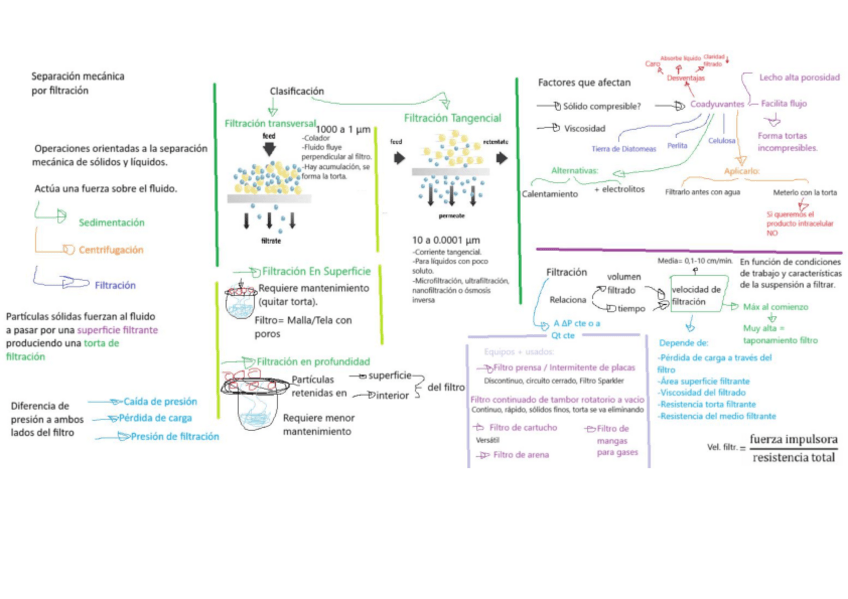 Separación mecánica
por filtración
Operaciones orientadas a la separación
mecánica de sólidos y líquidos.
Actúa una fuerza sobre el fluido.
Sedimentación
Centrifugación
Filtración
Partículas sólidas fuerzan al fluido
a pasar por una superficie filtrante
produciendo una torta de
filtración
Diferencia de
presión a ambos
lados del filtro
Caída de presión
Pérdida de carga
Presión de filtración
Clasificación
Filtración transversal
1000 a 1 μm
feed
-Colador
-Fluido fluye
perpendicular al filtro.
-Hay acumulación, se
forma la torta.
filtrate
Filtración Tangencial
feed
retentate
permeate
10 a 0.0001 μm
-Corriente tangencial.
-Para líquidos con poco
soluto.
-Microfiltración, ultrafiltración,
nanofiltración o ósmosis
inversa
Filtración En Superficie
Requiere mantenimiento
(quitar torta).
Filtro= Malla/Tela con
poros
Filtración en profundidad
Partículas
retenidas en
superficie
interior
del filtro
Requiere menor
mantenimiento
Factores que afectan
Sólido compresible?
Viscosidad
Caro
Absorbe líquido
Claridad
filtrado
Desventajas
Coadyuvantes
Lecho alta porosidad
Facilita flujo
Forma tortas
incompresibles.
Tierra de Diatomeas
Perlita
Celulosa
Alternativas:
Calentamiento
+ electrolitos
Aplicarlo:
Filtrarlo antes con agua
Meterlo con la torta
Si queremos el
producto intracelular
NO
Filtración
Relaciona
volumen
filtrado
tiempo
A ΔP cte o a
Qt cte
Media= 0,1-10 cm/min.
velocidad de
filtración
En función de condiciones
de trabajo y características
de la suspensión a filtrar.
Máx al comienzo
Muy alta =
taponamiento filtro
Depende de:
-Pérdida de carga a través del
filtro
-Área superficie filtrante
-Viscosidad del filtrado
-Resistencia torta filtrante
-Resistencia del medio filtrante
Vel. filtr. = fuerza impulsora
resistencia total
Equipos + usados:
Filtro prensa / Intermitente de placas
Discontinuo, circuito cerrado, Filtro Sparkler
Filtro continuado de tambor rotatorio a vacio
Continuo, rápido, sólidos finos, torta se va eliminando
Filtro de cartucho
Versátil
Filtro de arena
Filtro de
mangas
para gases